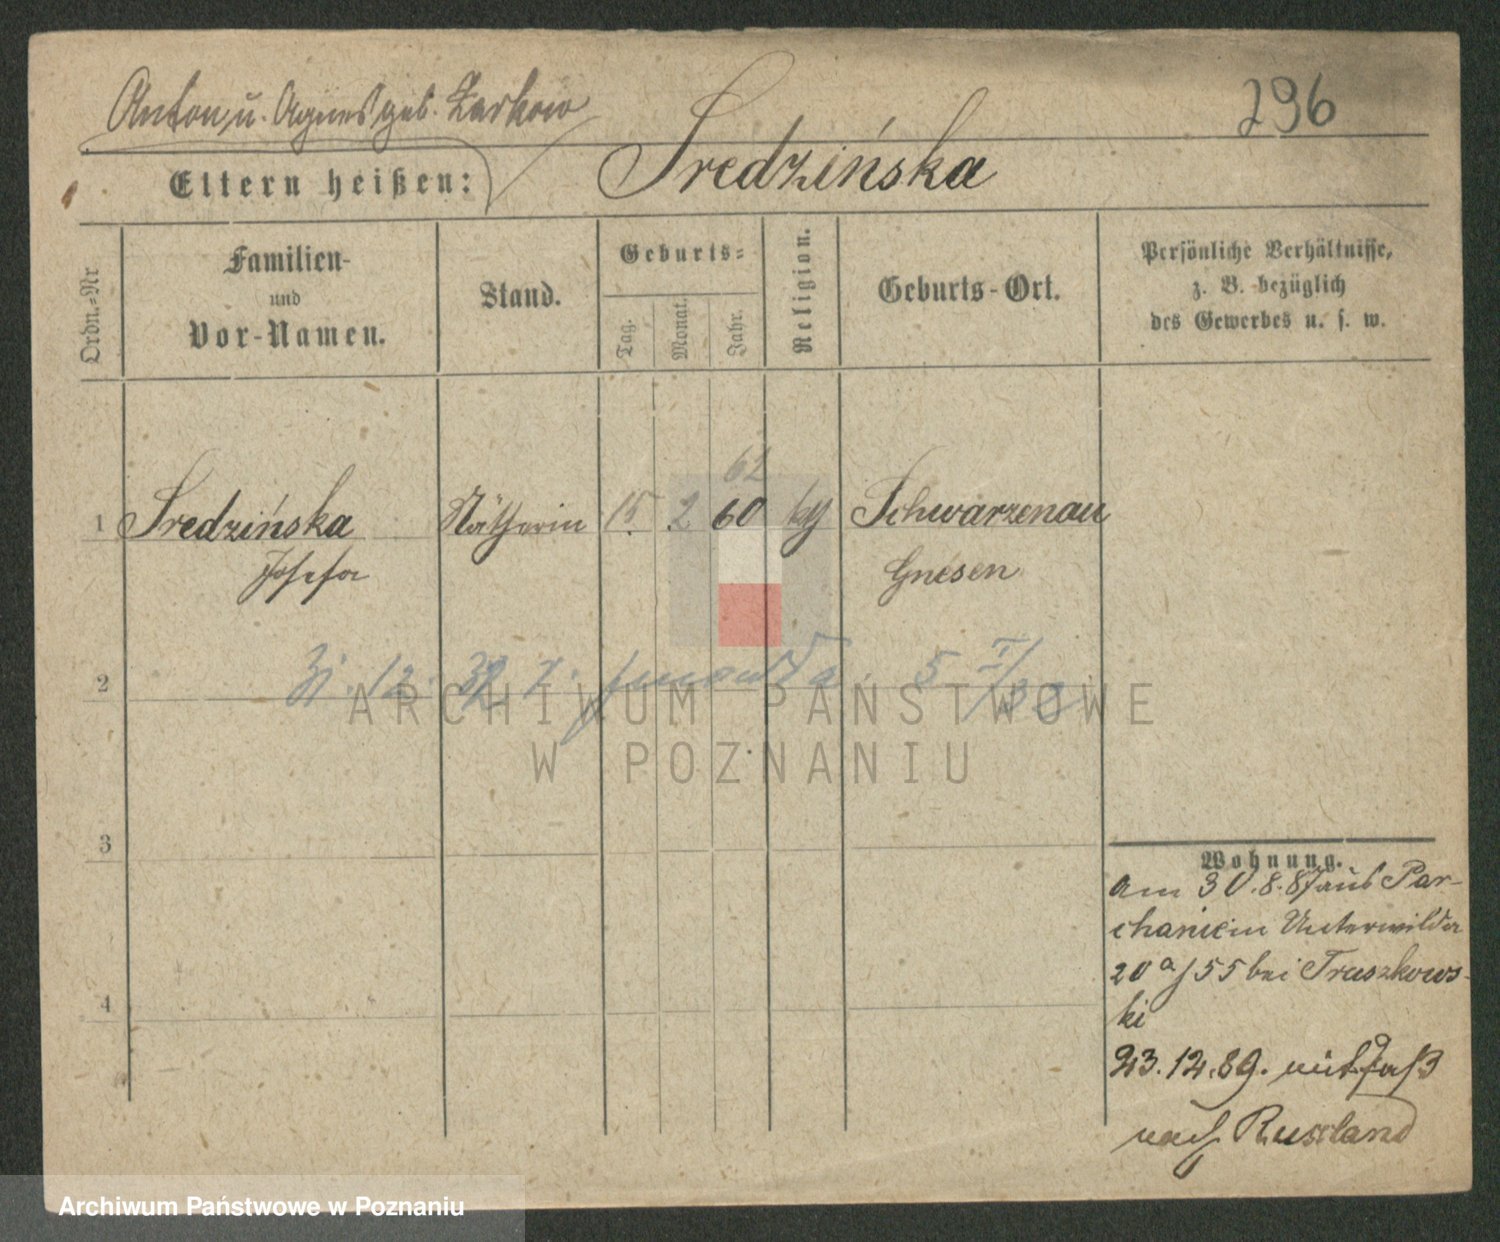 Anton u. Agnes geb. Zarkow
296
Eltern heißen:
Sredzińska
Ordn.=Nr.
Familien-
und
Vor-Namen.
Stand.
Geburts=
Tag.
Monat.
Jahr.
Religion.
Geburts-Ort.
Persönliche Verhältnisse,
z. B. bezüglich
des Gewerbes u. s. w.
62
1 Sredzińska Nätherin 15. 2 60 kg Schwarzenau
Josefa Gnesen
2
31. 12. 5 I/
3
4
Wohnung.
am 30.8.87 aus Par-
chanie in Unterwilda
20a/55 bei Truszkows-
ki
23.12.89. mit Paß
nach Russland
ARCHIWUM PAŃSTWOWE
W POZNANIU
Archiwum Państwowe w Poznaniu